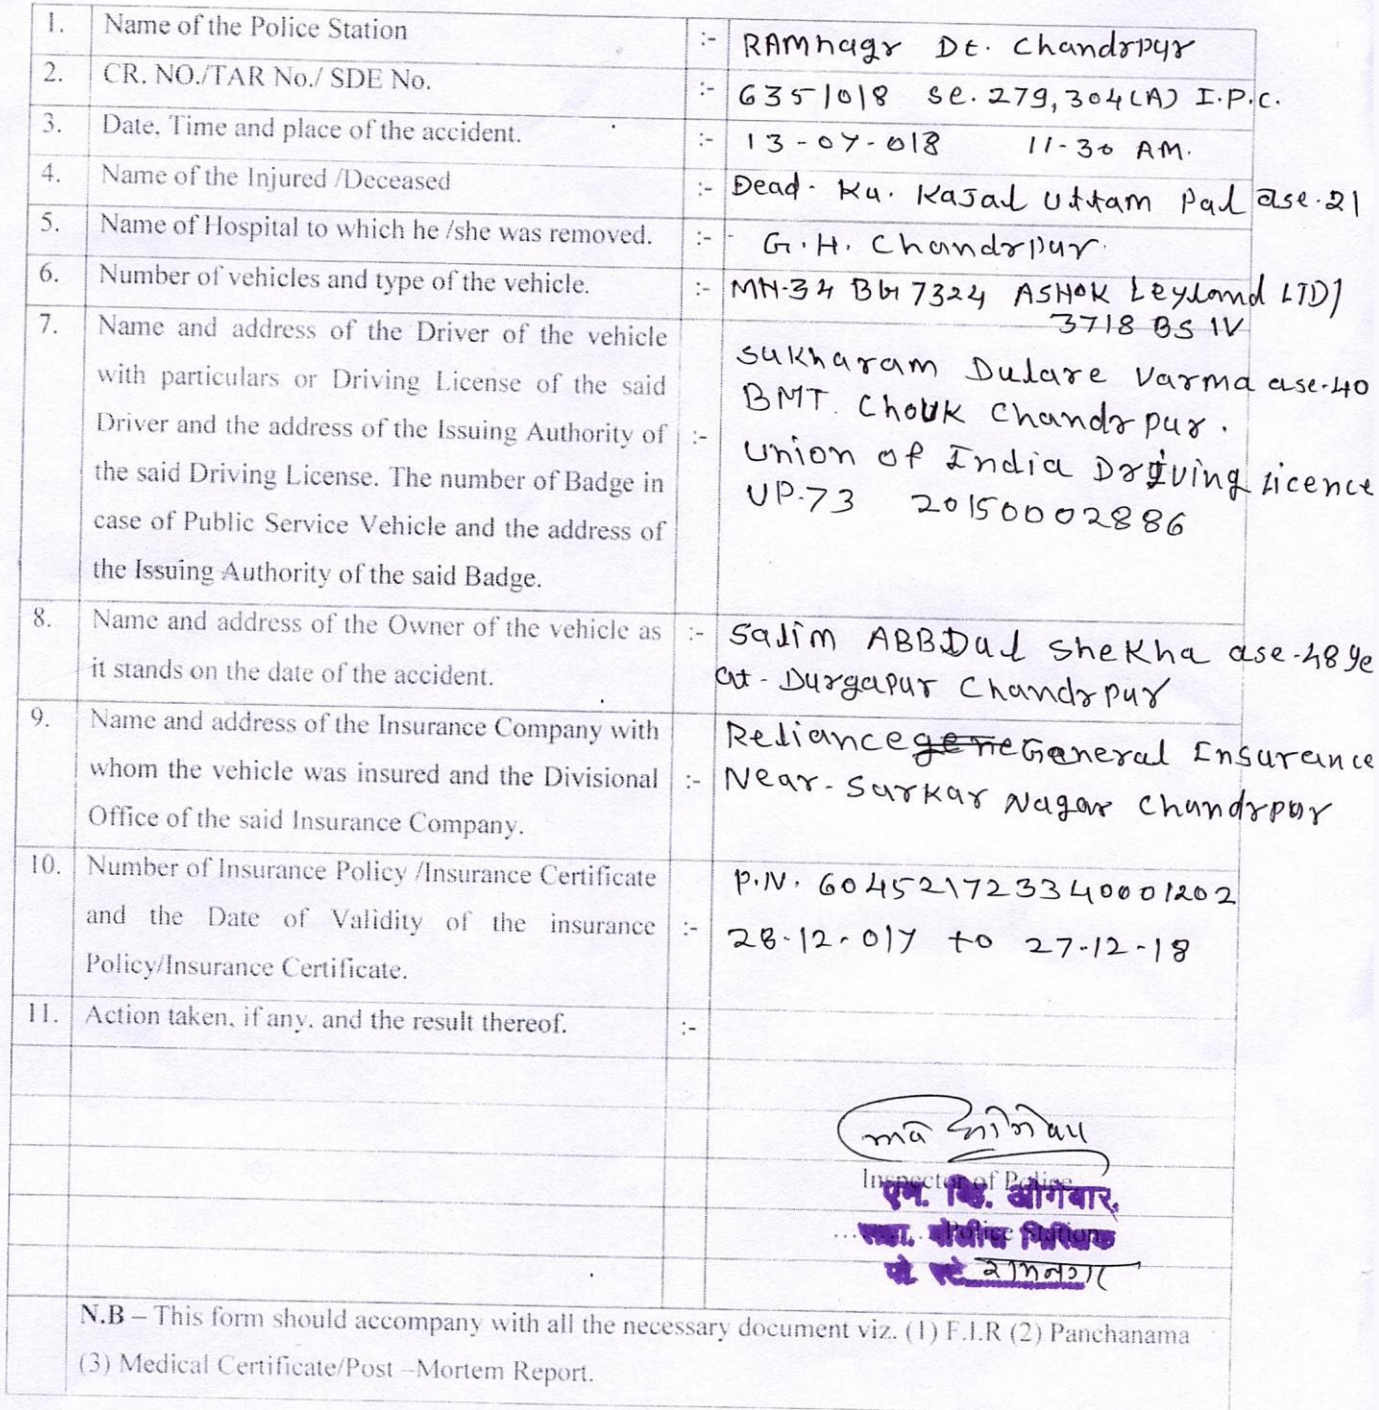 1. Name of the Police Station :- RAMnagr Dt. Chandrpur
2. CR. NO./TAR No./ SDE No. :- 635/018 se. 279, 304(A) I.P.C.
3. Date. Time and place of the accident. :- 13-07-018 11-30 AM.
4. Name of the Injured /Deceased :- Dead- Ku. Kajal Uttam Pal ase.21
5. Name of Hospital to which he /she was removed. :- G.H. Chandrpur.
6. Number of vehicles and type of the vehicle. :- MH-34 BG 7324 ASHOK Leyland LTD/
3718 BS IV
7. Name and address of the Driver of the vehicle
with particulars or Driving License of the said
Driver and the address of the Issuing Authority of :-
the said Driving License. The number of Badge in
case of Public Service Vehicle and the address of
the Issuing Authority of the said Badge.
Sukharam Dulare Varma ase-40
BMT. Chouk Chandrpur.
Union of India Driving Licence
UP-73 20150002886
8. Name and address of the Owner of the vehicle as :- Salim ABBDul Shekha ase-48 ye
it stands on the date of the accident. at- Durgapur Chandrpur
9. Name and address of the Insurance Company with
whom the vehicle was insured and the Divisional :-
Office of the said Insurance Company.
Reliance gene General Insurance
Near- Sarkar Nagar Chandrpur
10. Number of Insurance Policy /Insurance Certificate
and the Date of Validity of the insurance :-
Policy/Insurance Certificate.
P.N. 604521723340001202
28-12-017 to 27-12-18
11. Action taken, if any, and the result thereof. :-
Inspector of Police
एम. व्हि. ओगेवार,
सहा. पोलीस निरिक्षक
Police Station
पो. स्टे. रामनगर
N.B – This form should accompany with all the necessary document viz. (1) F.I.R (2) Panchanama
(3) Medical Certificate/Post –Mortem Report.